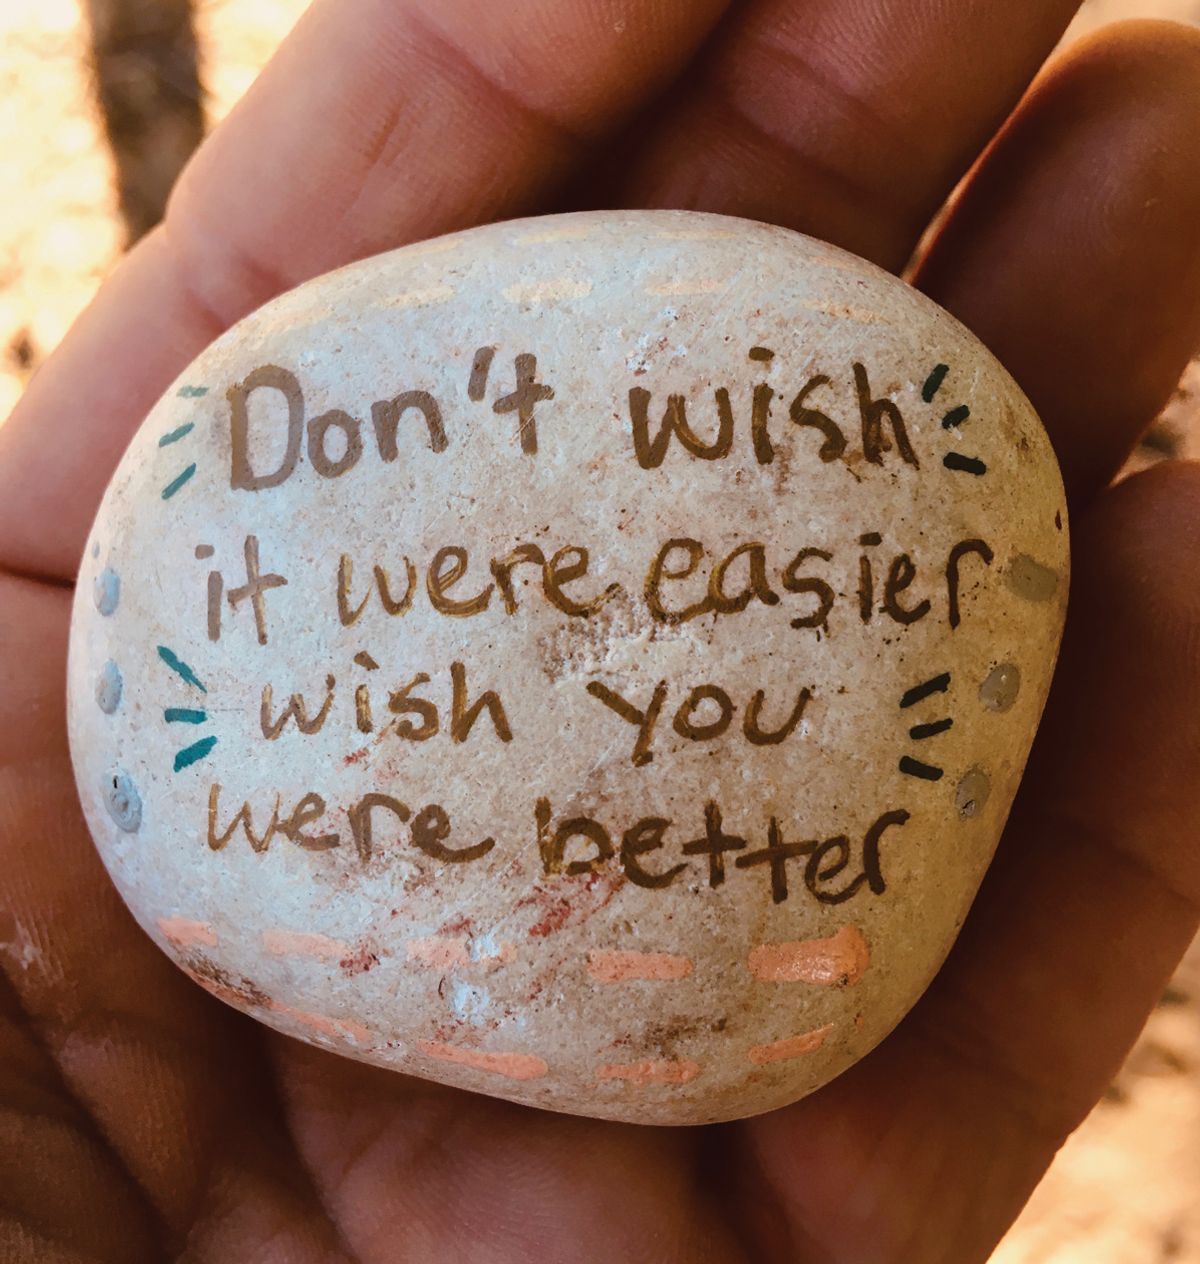 Don't wish
it were easier
wish you
were better